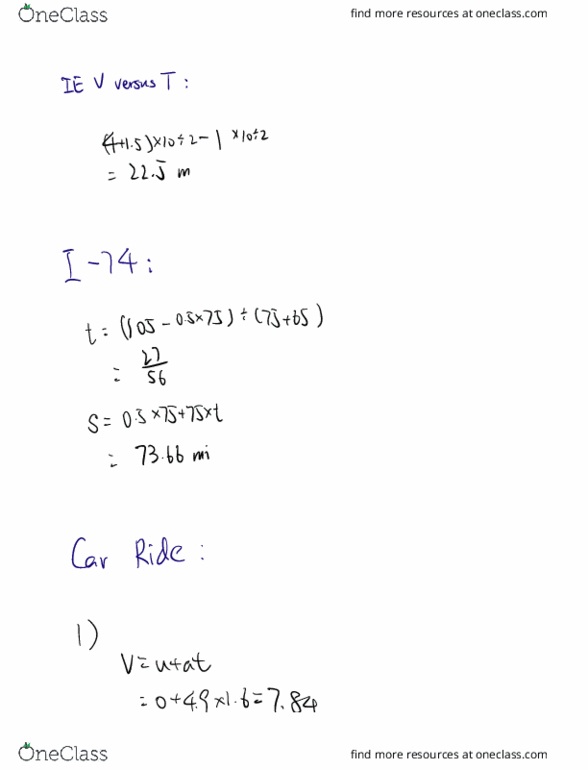 OneClass
find more resources at oneclass.com
IE V versus T :
(4+1.5)×10÷2 - 1 ×10÷2
= 22.5 m
I-74 :
t = (105 - 0.5×75) ÷ (75+65)
= 27/56
S = 0.5×75+75×t
= 73.66 mi
Car Ride :
1)
V = u+at
= 0+4.9×1.6=7.84
OneClass
find more resources at oneclass.com